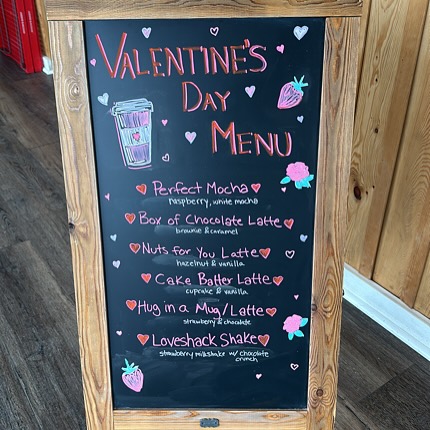 VALENTINE'S
DAY
MENU
Perfect Mocha
raspberry, white mocha
Box of Chocolate Latte
brownie & caramel
Nuts for You Latte
hazelnut & vanilla
Cake Batter Latte
cupcake & vanilla
Hug in a Mug/Latte
strawberry & chocolate
Loveshack Shake
strawberry milkshake w/ chocolate
crunch